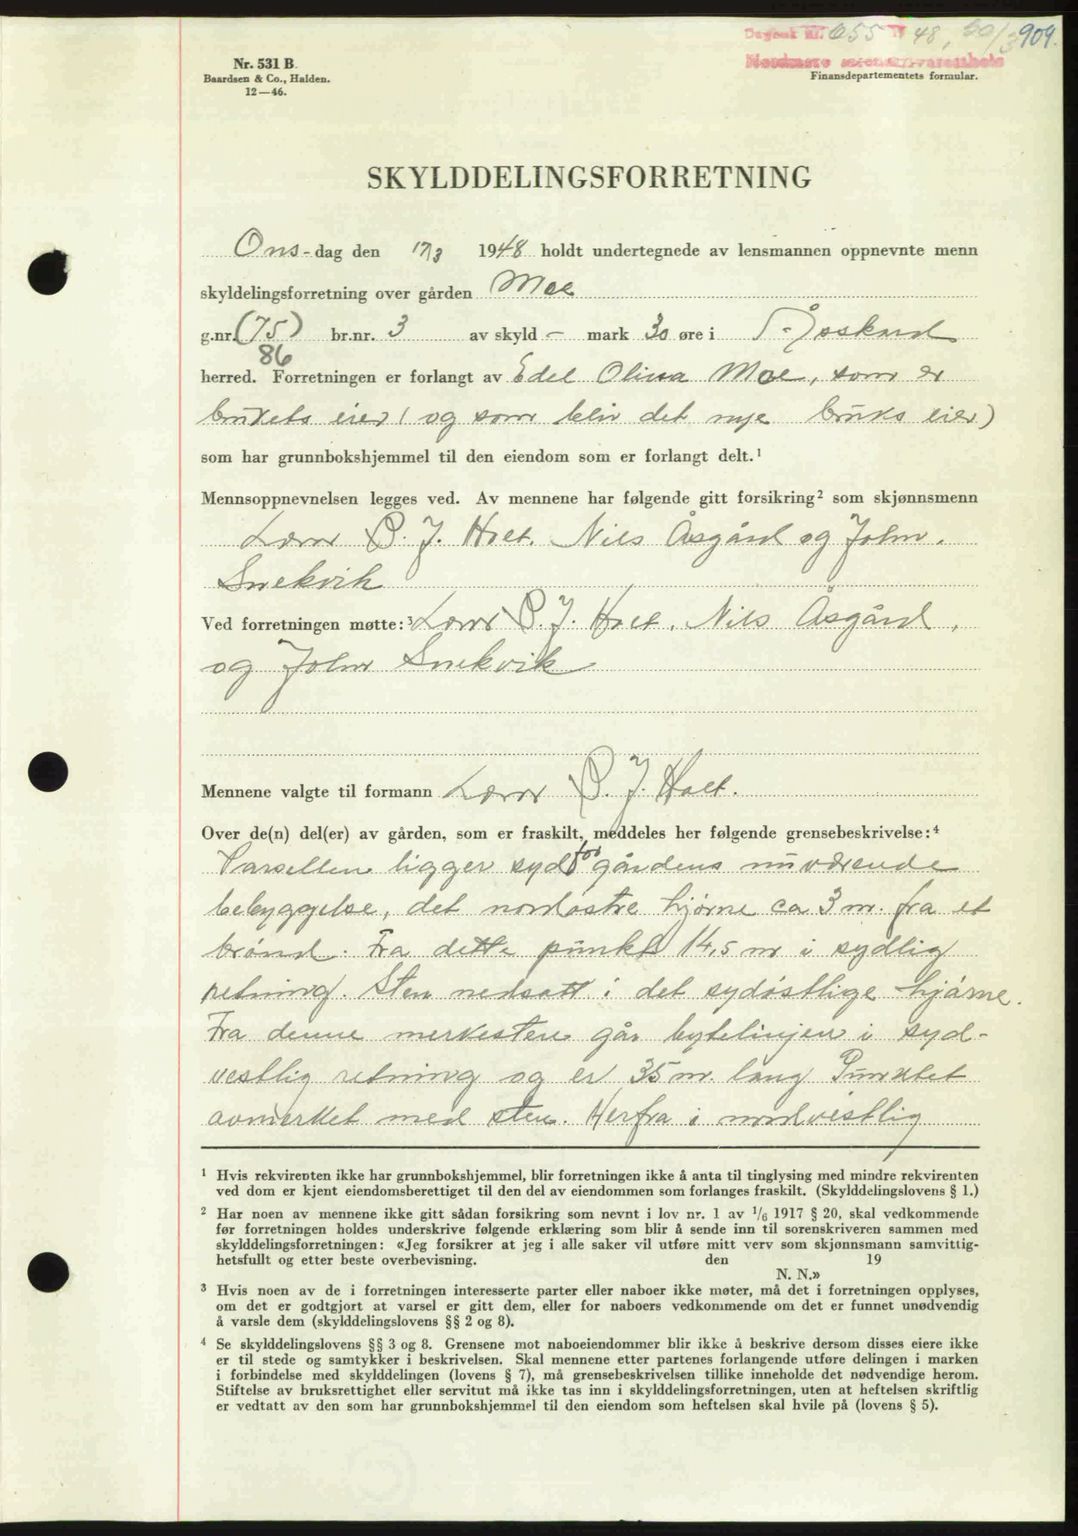 Dagbok nr. 655 19 48, 20/3 909.
Nordmøre sorenskriverembete
Nr. 531 B.
Baardsen & Co., Halden.
12—46.
Finansdepartementets formular.
SKYLDDELINGSFORRETNING
Ons-dag den 17/3 1948 holdt undertegnede av lensmannen oppnevnte menn
skyldelingsforretning over gården Moe
g.nr. (75) br.nr. 3 av skyld – mark 30 øre i Åsskard
86
herred. Forretningen er forlangt av Edel Olina Moe, som er
brukets eier (og som blir det nye bruks eier)
som har grunnbokshjemmel til den eiendom som er forlangt delt.¹
Mennsoppnevnelsen legges ved. Av mennene har følgende gitt forsikring² som skjønnsmenn
Lærer P. J. Holt, Nils Åsgård og John
Snekvik
Ved forretningen møtte:³ Lærer P. J. Holt, Nils Åsgård,
og John Snekvik
Mennene valgte til formann Lærer P. J. Holt.
Over de(n) del(er) av gården, som er fraskilt, meddeles her følgende grensebeskrivelse:⁴
Parsellen ligger syd for gårdens nuværende
bebyggelse, det nordøstre hjørne ca 3 m. fra et
brønd. Fra dette punkt 14,5 m i sydlig
retning. Sten nedsatt i det sydøstlige hjørne.
Fra denne merkesten går bytelinjen i syd-
vestlig retning og er 35 m. lang Punktet
avmerket med sten. Herfra i nordvestlig
¹ Hvis rekvirenten ikke har grunnbokshjemmel, blir forretningen ikke å anta til tinglysing med mindre rekvirenten
ved dom er kjent eiendomsberettiget til den del av eiendommen som forlanges fraskilt. (Skylddelingslovens § 1.)
² Har noen av mennene ikke gitt sådan forsikring som nevnt i lov nr. 1 av 1/6 1917 § 20, skal vedkommende
før forretningen holdes underskrive følgende erklæring som blir å sende inn til sorenskriveren sammen med
skylddelingsforretningen: «Jeg forsikrer at jeg i alle saker vil utføre mitt verv som skjønnsmann samvittig-
hetsfullt og etter beste overbevisning. den 19
N. N.»
³ Hvis noen av de i forretningen interesserte parter eller naboer ikke møter, må det i forretningen opplyses,
om det er godtgjort at varsel er gitt dem, eller for naboers vedkommende om det er funnet unødvendig
å varsle dem (skylddelingslovens §§ 2 og 8).
⁴ Se skylddelingslovens §§ 3 og 8. Grensene mot naboeiendommer blir ikke å beskrive dersom disses eiere ikke
er til stede og samtykker i beskrivelsen. Skal mennene etter partenes forlangende utføre delingen i marken
i forbindelse med skylddelingen (lovens § 7), må grensebeskrivelsen tillike inneholde det nødvendige herom.
Stiftelse av bruksrettighet eller servitut må ikke tas inn i skylddelingsforretningen, uten at heftelsen skriftlig
er vedtatt av den som har grunnbokshjemmel til den eiendom som heftelsen skal hvile på (lovens § 5).